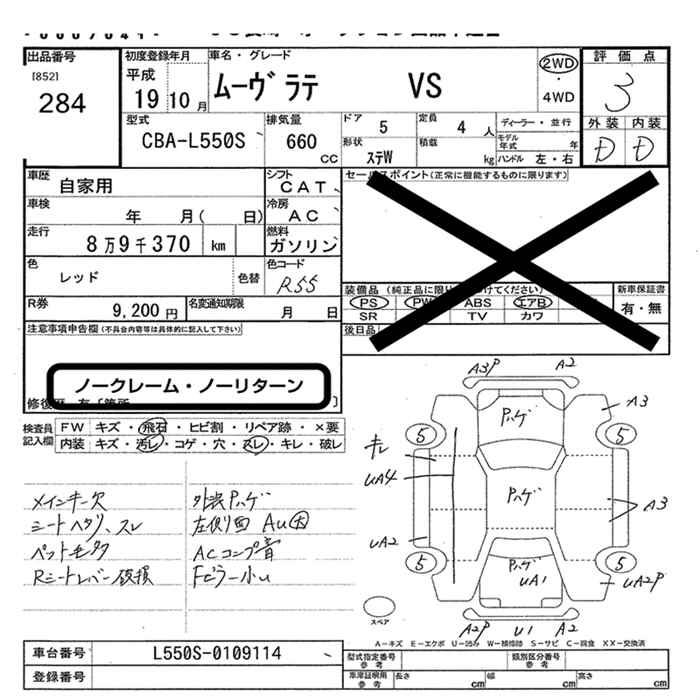 出品番号
[852]
284
初度登録年月
平成
19 10 月
車名・グレード
ムーヴ ラテ VS
2WD
・
4WD
評価点
3
外装 内装
D D
型式
CBA-L550S
排気量
660
CC
ドア
5
定員
4 人
形状
ステW
積載
kg
ディーラー・並行
モデル年式 年
ハンドル 左・右
車歴
自家用
シフト
CAT
車検
年 月( 日)
冷房
AC
走行
8万9千370 km
燃料
ガソリン
色
レッド
色替
色コード
R55
R券
9,200 円
名変通知期限
月 日
セールスポイント(正常に機能するものに限ります)
装備品
PS PW ABS エアB
SR TV カワ
後日品
新車保証書
有・無
注意事項申告欄(不具合内容等は具体的に記入して下さい)
ノークレーム・ノーリターン
検査員記入欄
FW キズ・飛石・ヒビ割・リペア跡・×要
内装 キズ・汚レ・コゲ・穴・スレ・キレ・破レ
メインキー欠
シートヘタリ、スレ
ペットモウタク
Rシートレバー破損
外装Pハゲ
左側面 AU大
ACコンプ音
Fピラー小U
A3P A2
Pハゲ
A3
5 5
キレ
UA4
Pハゲ
A3
UA2
5 5
Pハゲ
UA1
UA2P
スペア
A2P U1 A2
A-キズ E-エクボ U-凹み W-補修跡 S-サビ C-腐食 XX-交換済
車台番号
L550S-0109114
登録番号
型式指定番号
参考
類別区分番号
参考
車庫証明用
参考
長さ cm
幅 cm
高さ cm